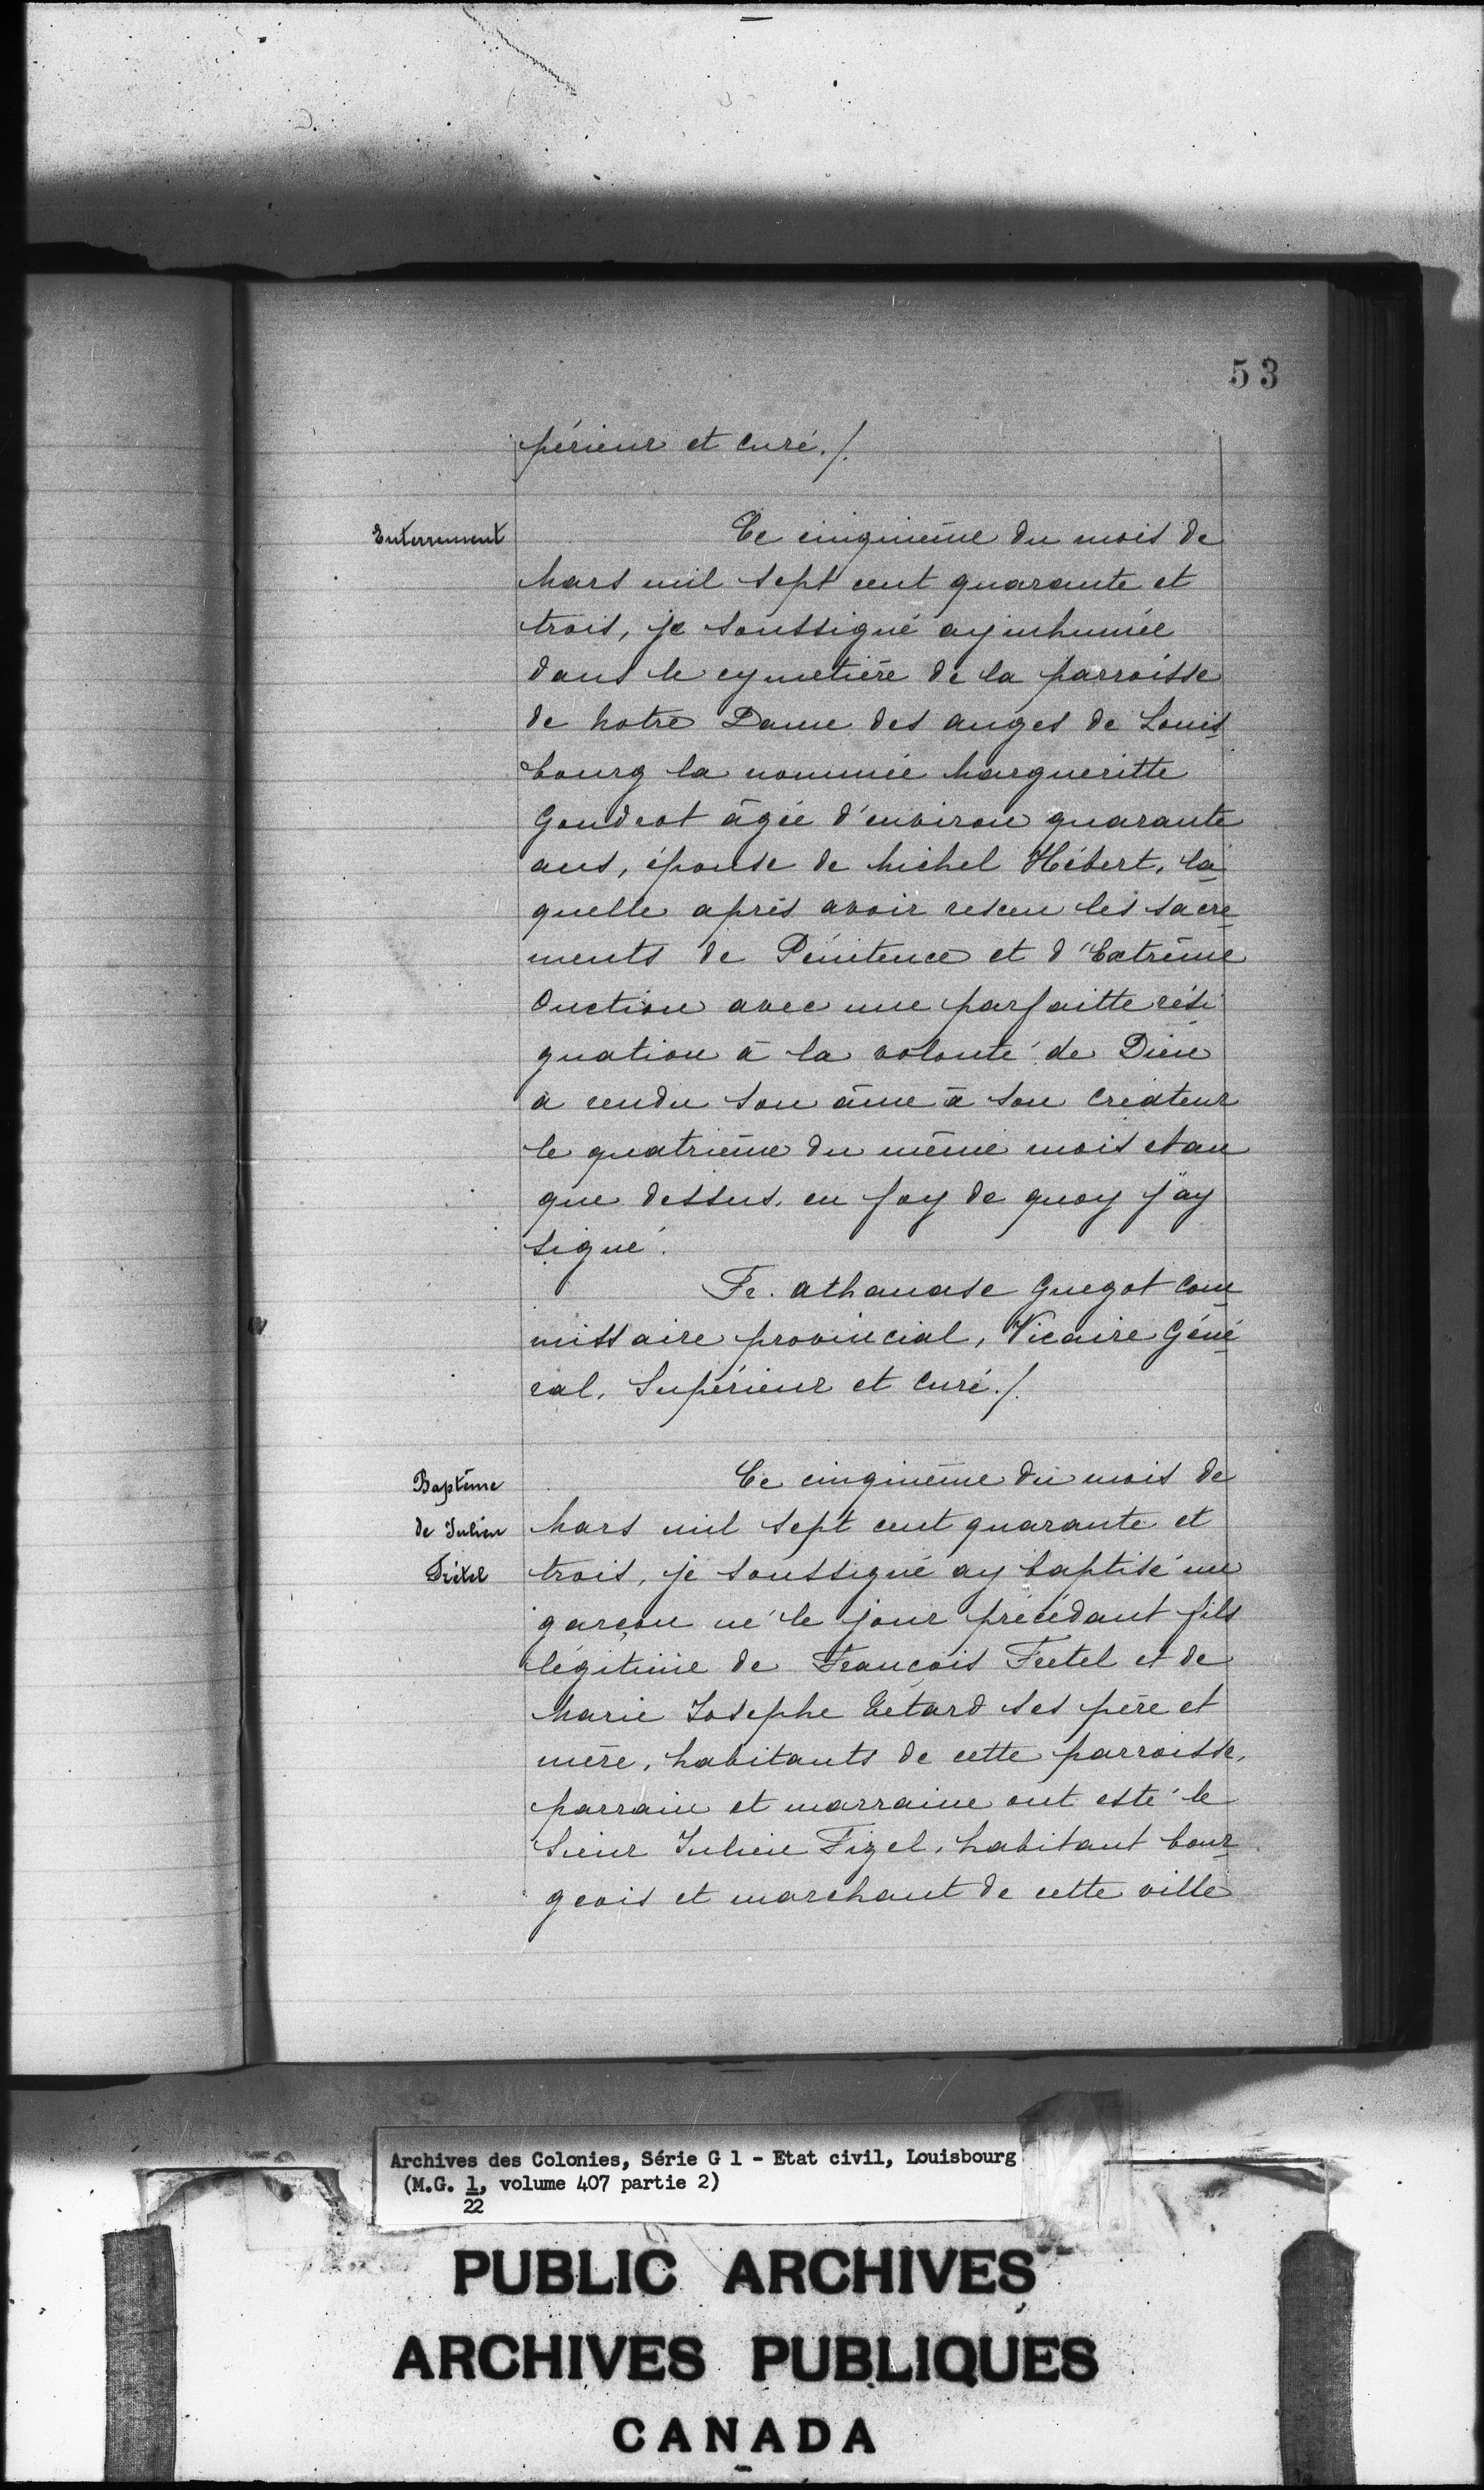 53
périeur et curé./.
Enterrement
Ce cinquième du mois de
Mars mil sept cent quarante et
trois, je soussigné ay inhumée
dans le cymetière de la parroisse
de Notre Dame des anges de Louis
bourg la nommée Margueritte
Goudrot âgée d'environ quarante
ans, épouse de Michel Hébert, la
quelle après avoir resceu les sacre
ments de Pénitence et d'Extrême
Onction avec une parfaitte rési
gnation à la volonté de Dieu
a rendu son âme à son Créateur
le quatrième du même mois et an
que dessus. en foy de quoy j'ay
signé.
Fr. athanase Guegot Com
missaire provincial, Vicaire Géné
ral, Supérieur et Curé./.
Baptême
de Julien
Ce cinquième du mois de
Mars mil sept cent quarante et
trois, je soussigné ay baptisé un
garçon né le jour précédant fils
légitime de François Fretel et de
Marie Josephe ses père et
mère, habitants de cette parroisse,
parrain et marraine ont esté le
Sieur Julien Fizel, habitant bour
geois et marchant de cette ville
Archives des Colonies, Série G 1 - Etat civil, Louisbourg
(M.G. 1, volume 407 partie 2)
22
PUBLIC ARCHIVES
ARCHIVES PUBLIQUES
CANADA